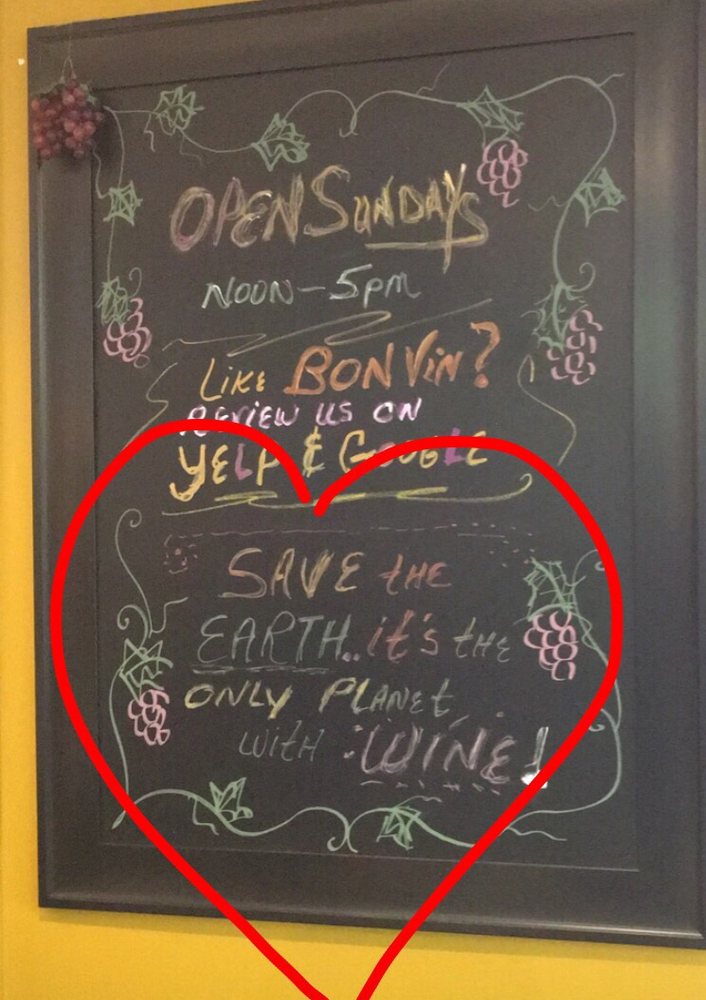 OPEN SUNDAYS
NOON-5pm
LIKE BON VIN?
REVIEW US ON
YELP & GOOGLE
SAVE tHE
EARTH..it's tHE
ONLY PLANEt
with WINE!